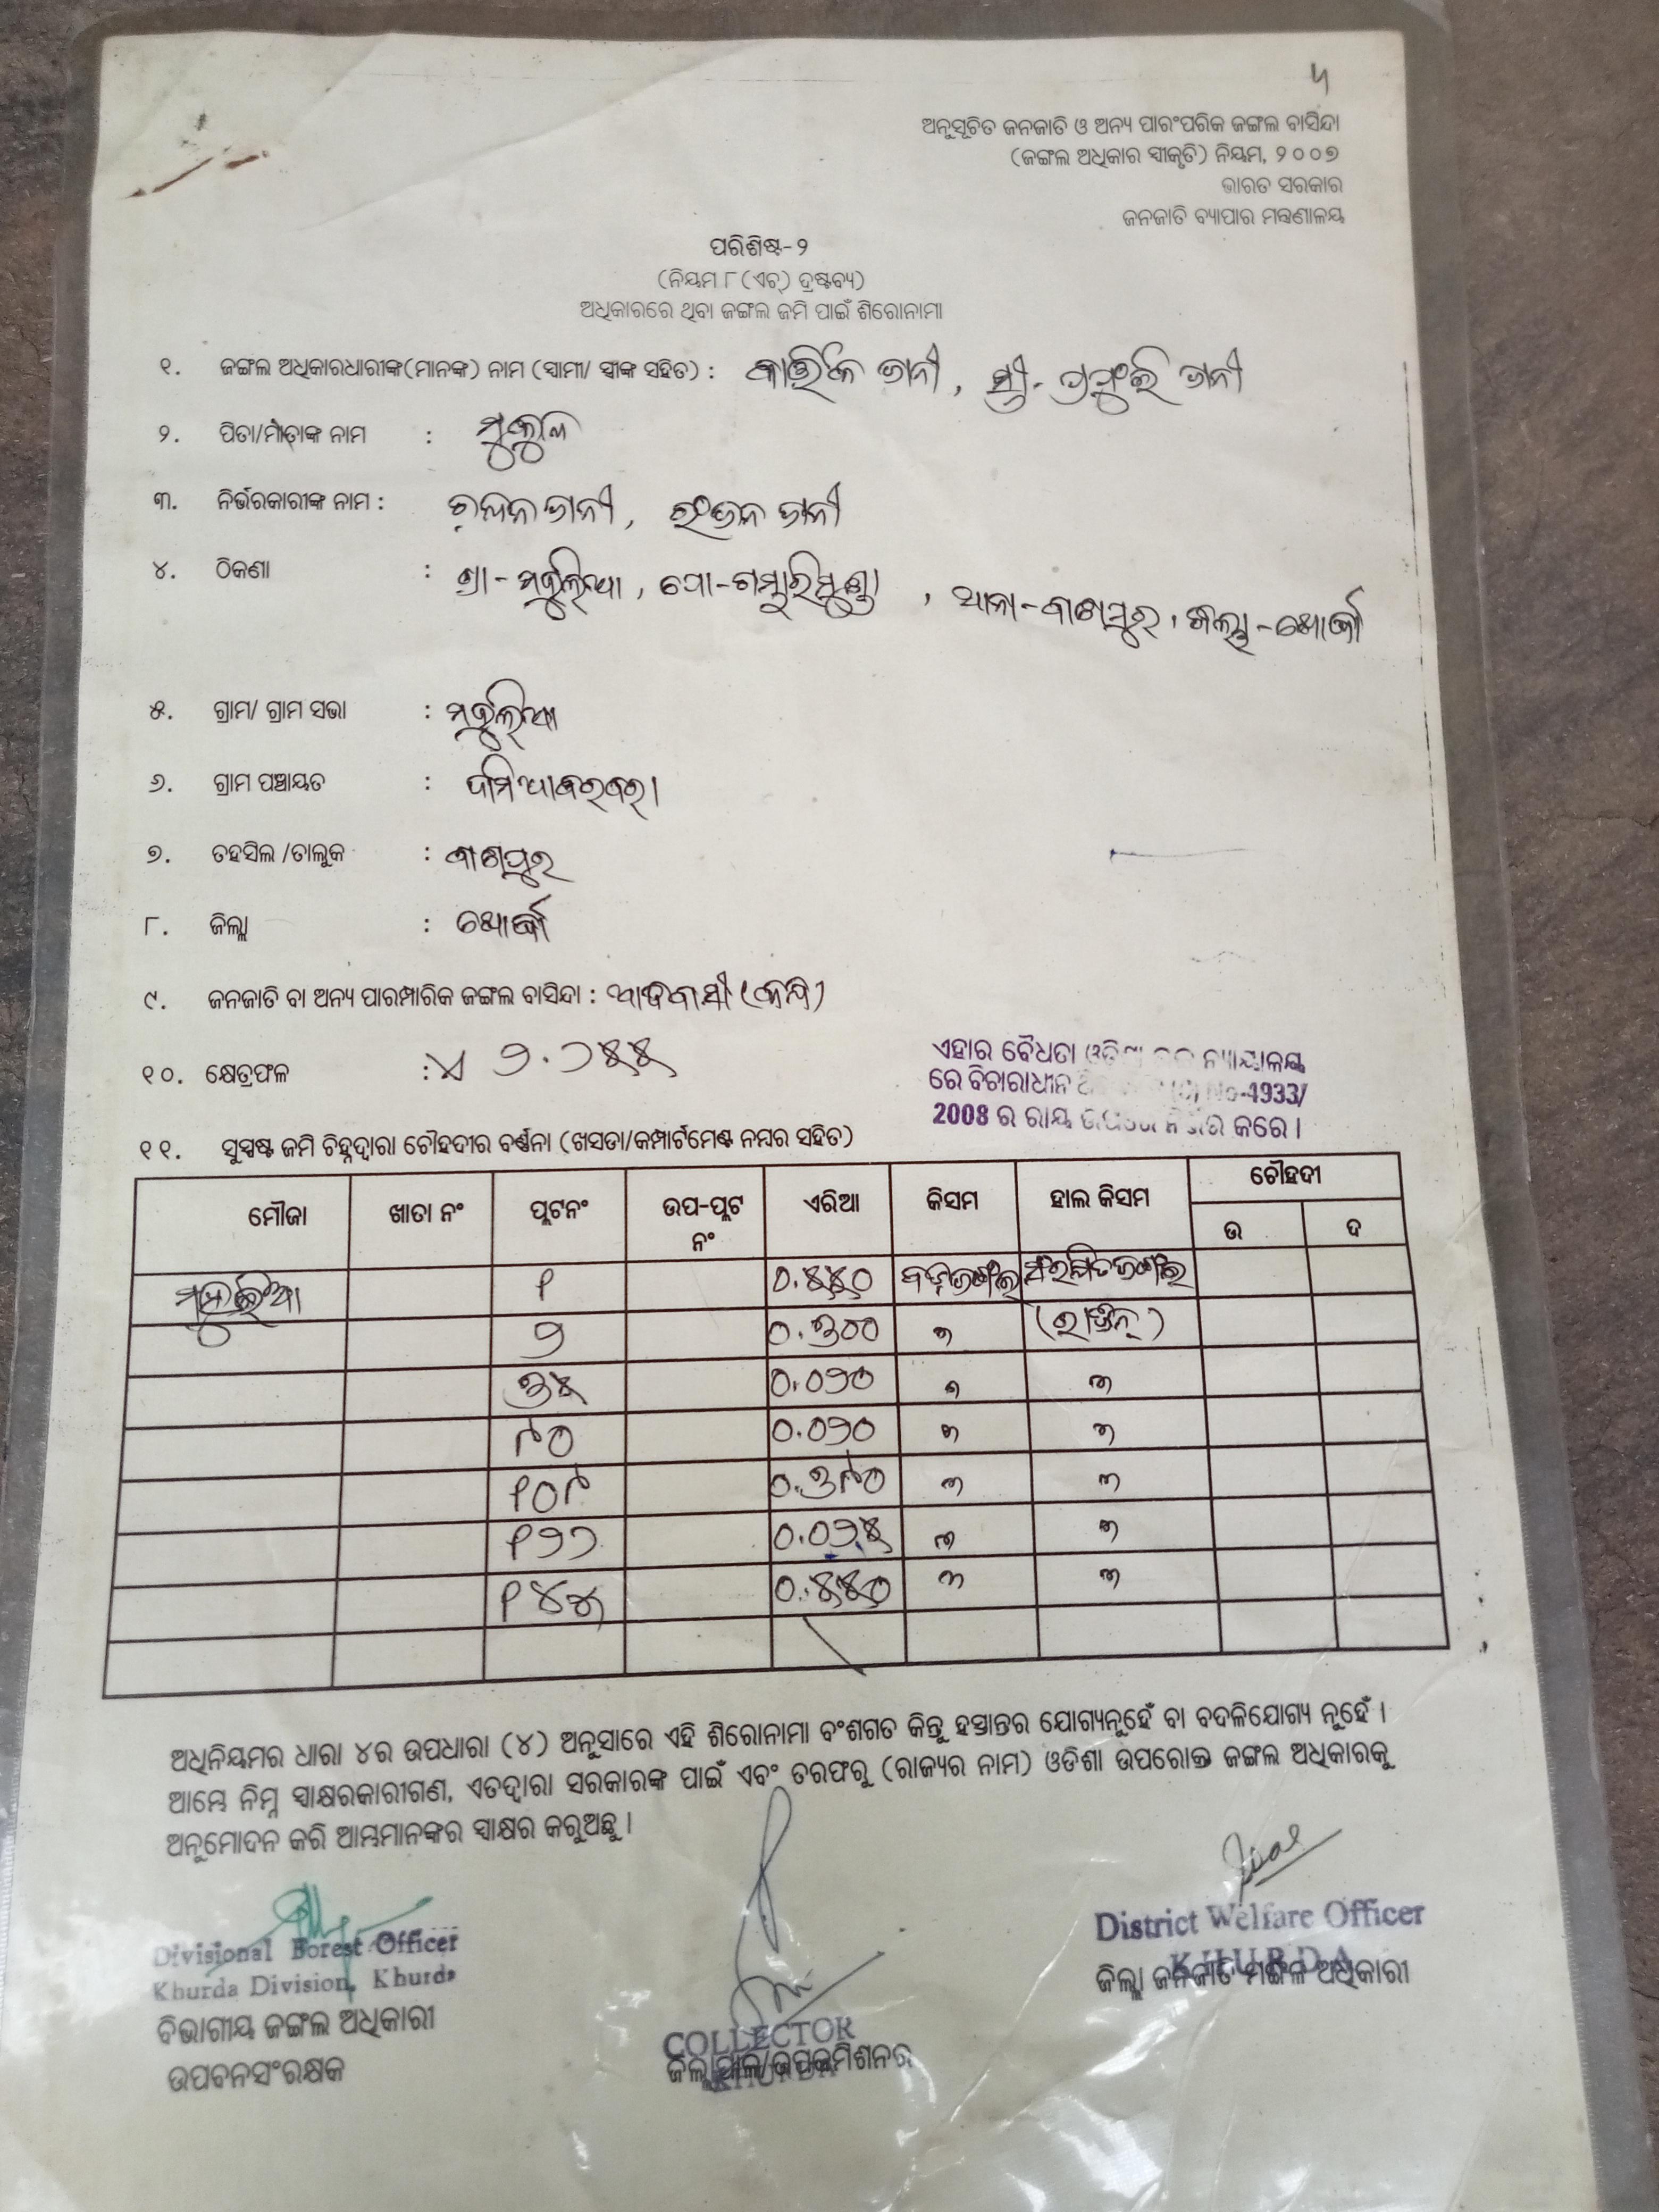 ୫
ଅନୁସୂଚିତ ଜନଜାତି ଓ ଅନ୍ୟ ପାରଂପରିକ ଜଙ୍ଗଲ ବାସିନ୍ଦା
(ଜଙ୍ଗଲ ଅଧିକାର ସ୍ୱୀକୃତି) ନିୟମ, ୨୦୦୭
ଭାରତ ସରକାର
ଜନଜାତି ବ୍ୟାପାର ମନ୍ତ୍ରଣାଳୟ
ପରିଶିଷ୍ଟ-୨
(ନିୟମ ୮ (ଏଚ୍) ଦ୍ରଷ୍ଟବ୍ୟ)
ଅଧିକାରରେ ଥିବା ଜଙ୍ଗଲ ଜମି ପାଇଁ ଶିରୋନାମା
୧. ଜଙ୍ଗଲ ଅଧିକାରଧାରୀଙ୍କ(ମାନଙ୍କ) ନାମ (ସ୍ୱାମୀ/ ସ୍ତ୍ରୀଙ୍କ ସହିତ) : କାର୍ତ୍ତିକ ଜାନୀ, ସ୍ତ୍ରୀ- ଜାନୀ
୨. ପିତା/ମାତାଙ୍କ ନାମ : ମୁକୁଳ
୩. ନିର୍ଭରକାରୀଙ୍କ ନାମ : ଜାନୀ, ରଂଜନ ଜାନୀ
୪. ଠିକଣା : ଗ୍ରା- , ପୋ-ଗମ୍ଭାରିମୁଣ୍ଡା, ଥାନା-ବାଣପୁର, ଜିଲ୍ଲା-ଖୋର୍ଦ୍ଧା
୫. ଗ୍ରାମ/ ଗ୍ରାମ ସଭା :
୬. ଗ୍ରାମ ପଞ୍ଚାୟତ : ଦାମିଆବରବରା
୭. ତହସିଲ /ତାଲୁକ : ବାଣପୁର
୮. ଜିଲ୍ଲା : ଖୋର୍ଦ୍ଧା
୯. ଜନଜାତି ବା ଅନ୍ୟ ପାରମ୍ପାରିକ ଜଙ୍ଗଲ ବାସିନ୍ଦା : ଆଦିବାସୀ (କନ୍ଧ)
୧୦. କ୍ଷେତ୍ରଫଳ : ୨.୨୫୫
ଏହାର ବୈଧତା ନ୍ୟାୟାଳୟ
ରେ ବିଚାରାଧୀନ No-4933/
2008 ର ରାୟ ଉପରେ ନିର୍ଭର କରେ ।
୧୧. ସୁସ୍ପଷ୍ଟ ଜମି ଚିହ୍ନଦ୍ୱାରା ଚୌହଦୀର ବର୍ଣ୍ଣନା (ଖସଡା/କମ୍ପାର୍ଟମେଣ୍ଟ ନମ୍ବର ସହିତ)
ମୌଜା ଖାତା ନଂ ପ୍ଲଟନଂ ଉପ-ପ୍ଲଟ ନଂ ଏରିଆ କିସମ ହାଲ କିସମ ଚୌହଦୀ
ଉ ଦ
୧ ୦.୫୫୦
୨ ୦.୩୦୦ ”
୩୫ ୦.୦୨୦ ” ”
୯୦ ୦.୦୨୦ ” ”
୧୦୯ ୦.୩୯୦ ” ”
୧୨୨ ୦.୦୨୫ ” ”
୧୪୫ ୦.୫୫୦ ” ”
ଅଧିନିୟମର ଧାରା ୪ର ଉପଧାରା (୪) ଅନୁସାରେ ଏହି ଶିରୋନାମା ବଂଶଗତ କିନ୍ତୁ ହସ୍ତାନ୍ତର ଯୋଗ୍ୟନୁହେଁ ବା ବଦଳିଯୋଗ୍ୟ ନୁହେଁ ।
ଆମ୍ଭେ ନିମ୍ନ ସ୍ୱାକ୍ଷରକାରୀଗଣ, ଏତଦ୍ୱାରା ସରକାରଙ୍କ ପାଇଁ ଏବଂ ତରଫରୁ (ରାଜ୍ୟର ନାମ) ଓଡିଶା ଉପରୋକ୍ତ ଜଙ୍ଗଲ ଅଧିକାରକୁ
ଅନୁମୋଦନ କରି ଆମ୍ଭମାନଙ୍କର ସ୍ୱାକ୍ଷର କରୁଅଛୁ ।
Divisional Forest Officer
Khurda Division, Khurda
ବିଭାଗୀୟ ଜଙ୍ଗଲ ଅଧିକାରୀ
ଉପବନସଂରକ୍ଷକ
COLLECTOR
KHURDA
ଜିଲ୍ଲାପାଳ/ଉପକମିଶନର
District Welfare Officer
KHURDA
ଜିଲ୍ଲା ଜନଜାତି ମଙ୍ଗଳ ଅଧିକାରୀ